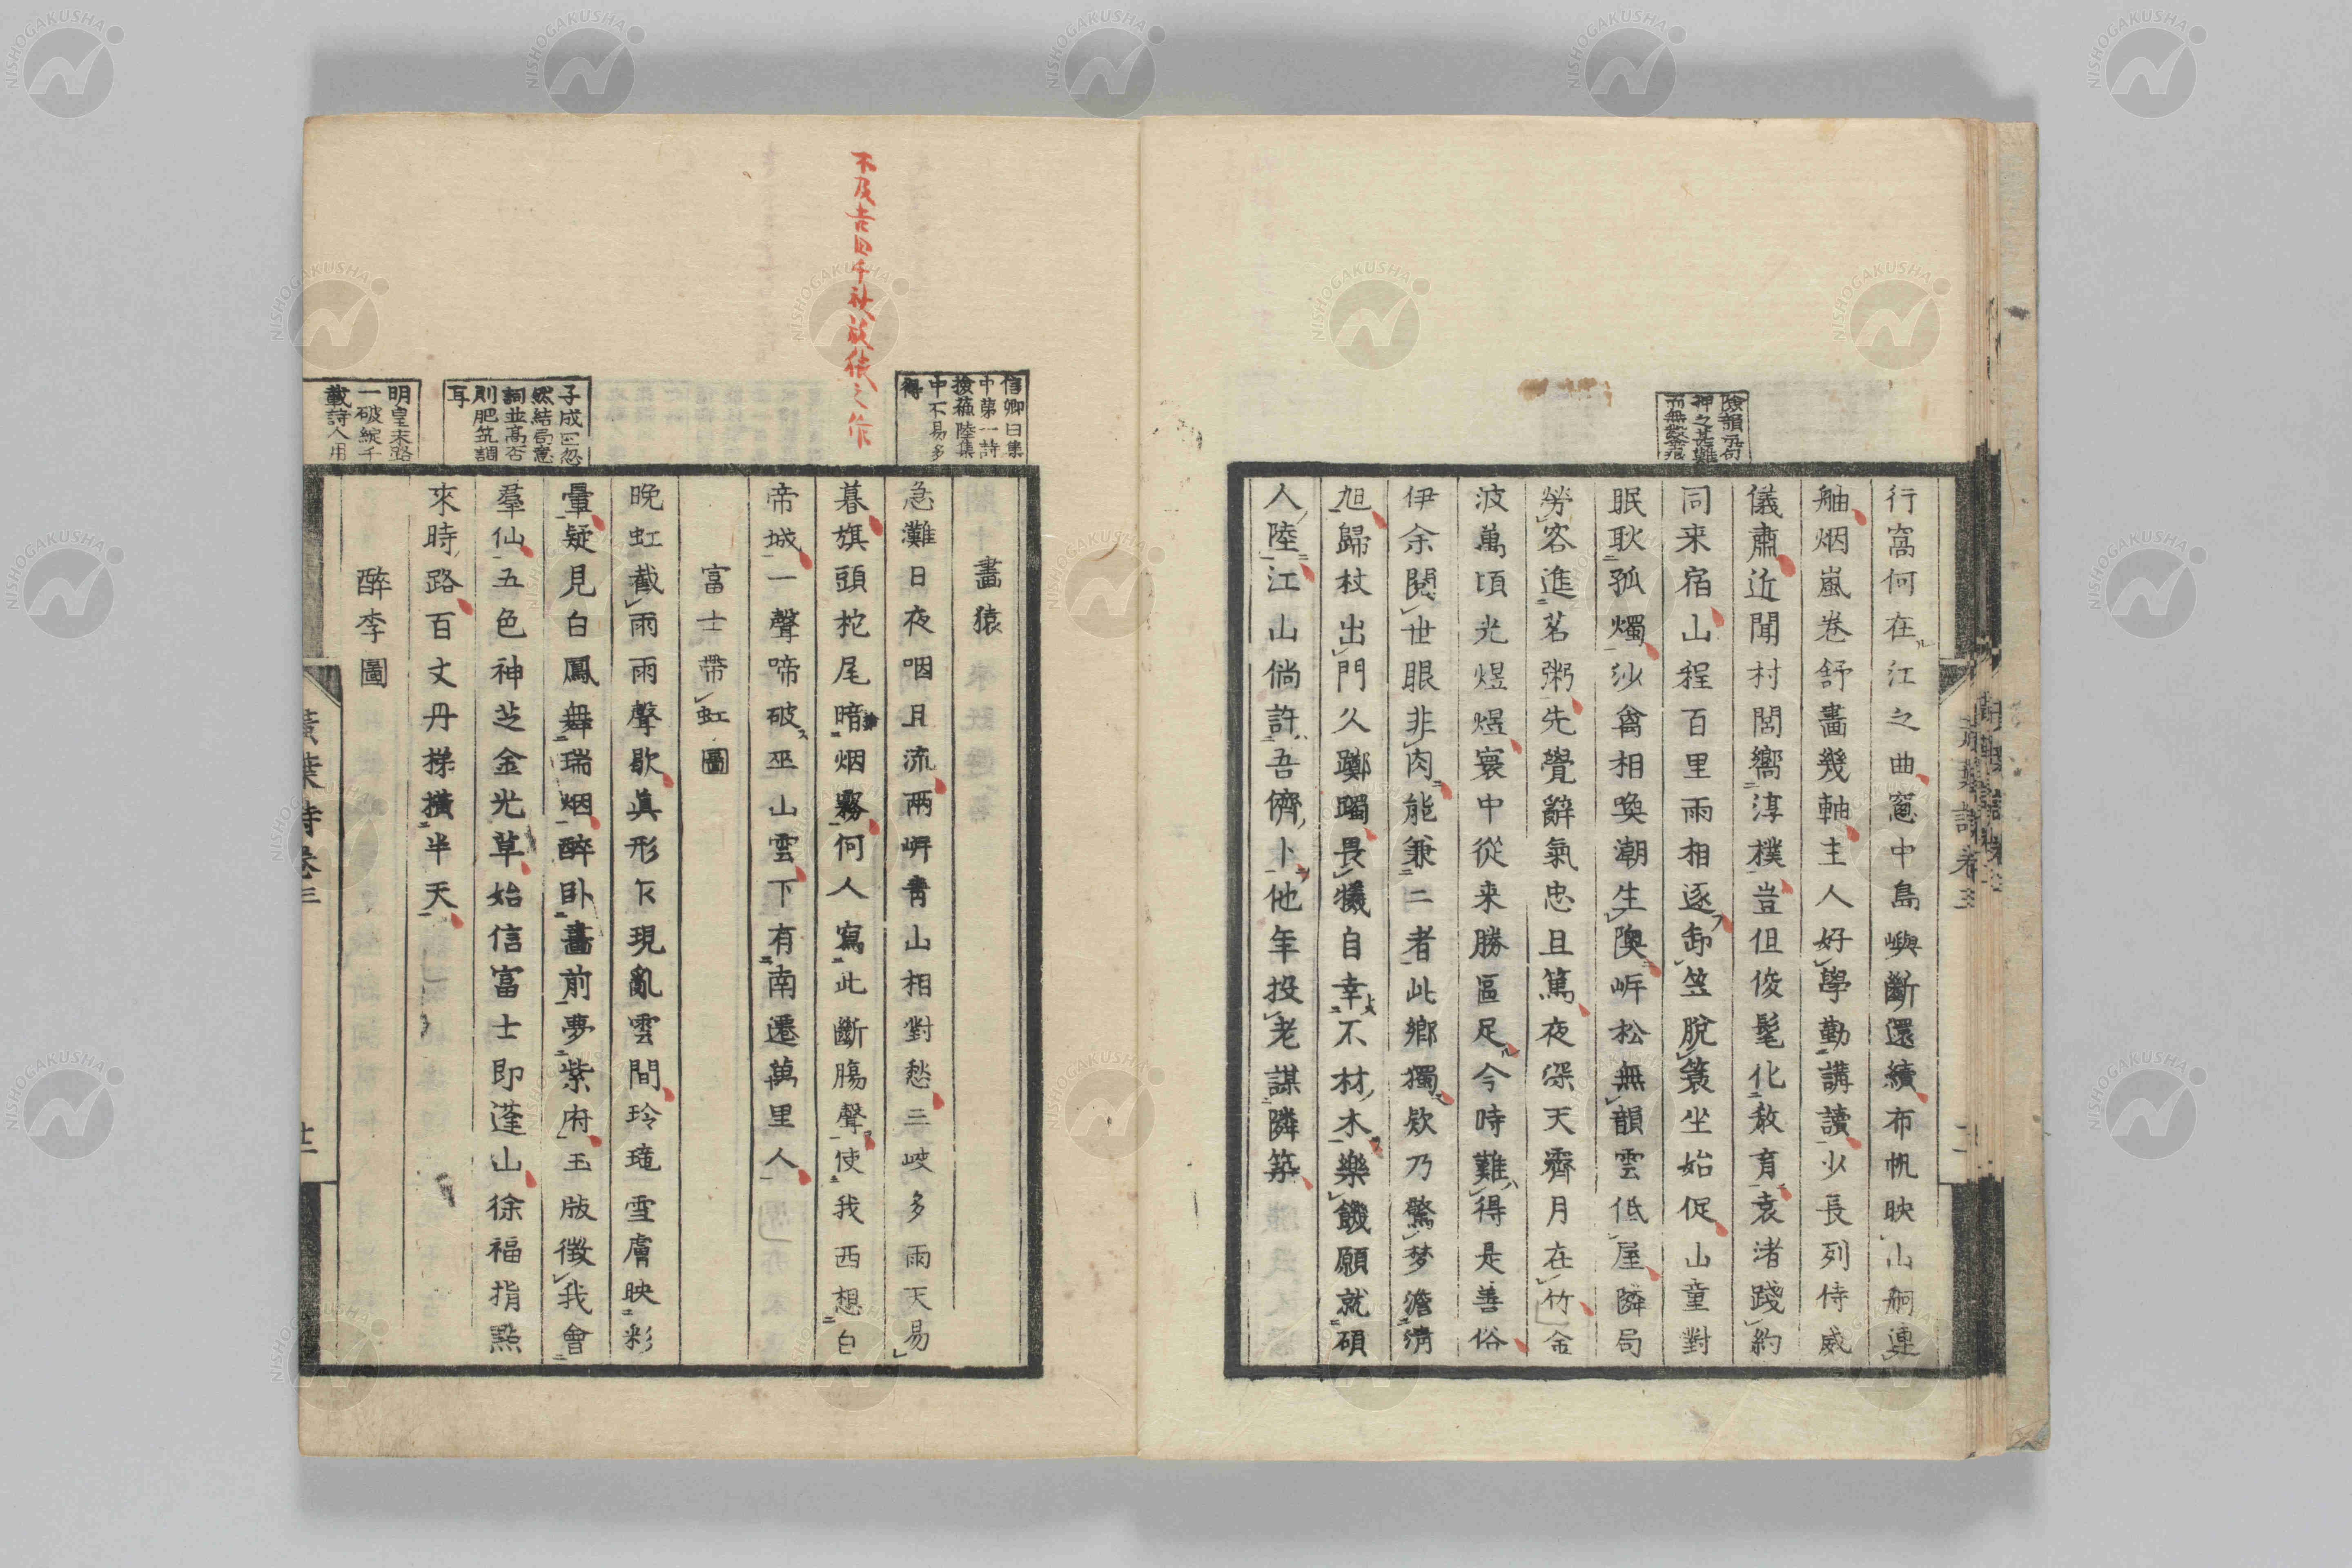 行窩何在江之曲窓中島嶼斷還續布帆映山舸連
舳烟嵐卷舒畵幾軸主人好學勤講讀少長列侍威
儀肅近聞村閭嚮淳樸豈但俊髦化敎育袁渚踐約
同来宿山程百里雨相逐卸笠脫簑坐始促山童對
眠耿孤燭沙禽相喚潮生隩岍松無韻雲低屋隣局
勞客進茗粥先覺辭氣忠且篤夜深天霽月在竹金
波萬頃光煜煜寰中從来勝區足今時難得是善俗
伊余閱世眼非肉能兼二者此鄉獨欸乃驚梦澹淸
旭歸杖出門久躑躅畏犧自幸不材木樂饑願就碩
人陸江山倘許吾儕卜他年投老謀隣築
信卿曰集
中第一詩
撿蘓陸集
中不易多
得
不及吉田千秋放猿之作
畵猿
急灘日夜咽月流兩岍靑山相對愁三峽多雨天易
暮旗頭柁尾暗烟霧何人寫此斷腸聲使我西想白
帝城一聲啼破巫山雲下有南遷萬里人
富士帶虹圖
子成曰忽
然結局意
詞並高否
則肥筑調
耳
晚虹截雨雨聲歇眞形乍現亂雲間玲瓏雪膚映彩
暈疑見白鳳舞瑞烟醉卧畵前夢紫府玉版徵我會
羣仙五色神芝金光草始信富士即蓬山徐福指點
來時路百丈丹梯橫半天
明皇末路
一破綻千
載詩人用
醉李圖
黃葉詩卷三
NISHOGAKUSHA